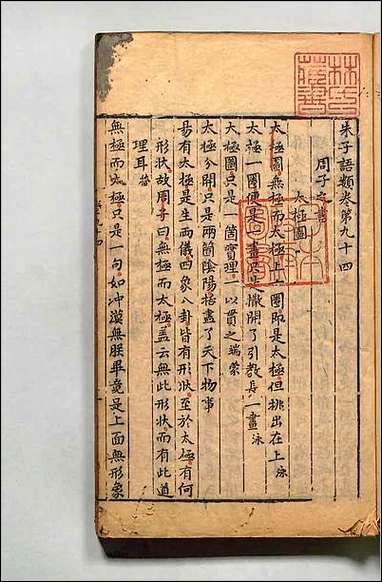 朱子語類卷第九十四
周子之書
太極圖
太極圖無極而太極上一圈即是太極但挑出在上 泳
太極一圈便是一畫只是撒開了引教長一畫 泳
太極圖只是一箇實理一以貫之 端蒙
太極分開只是兩箇陰陽括盡了天下物事
易有太極是生兩儀四象八卦皆有形狀至於太極有何
形狀故周子曰無極而太極蓋云無此形狀而有此道
理耳 㽦
無極而太極只是一句如冲漠無朕畢竟是上面無形象